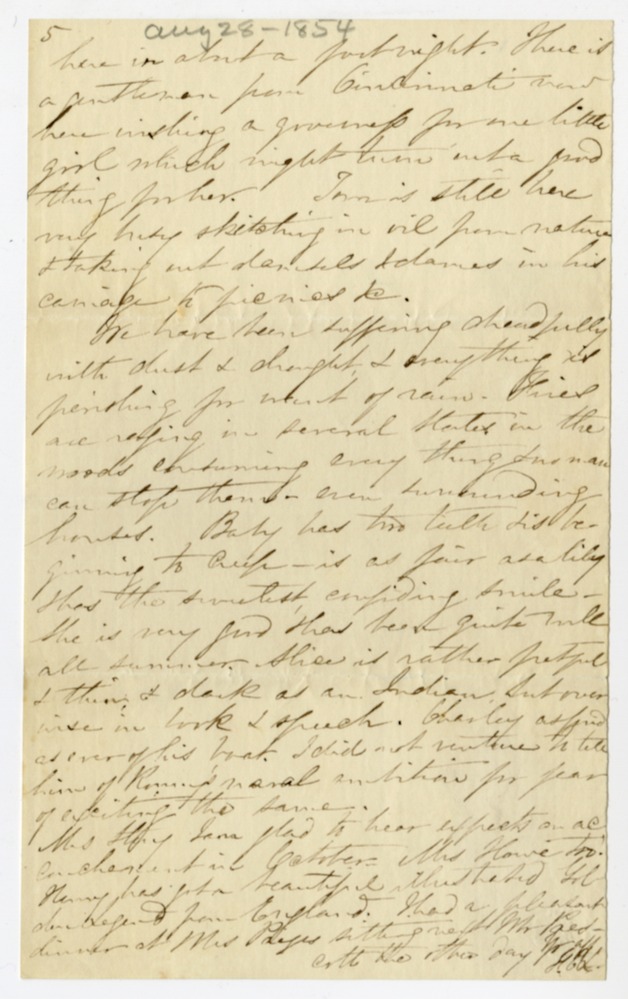 5 aug 28-1854
here in about a fortnight. There is
a gentleman from Cincinnati now
here wishing a governess for one little
girl which might turn out a good
thing for her. Tom is still here
very busy sketching in oil from nature
& taking out damsels & dames in his
carriage to picnics &c.
We have been suffering dreadfully
with dust & drought, & everything is
perishing for want of rain. Fires
are raging in several States in the
woods consuming every thing & no man
can stop them - even surrounding
houses. Baby has two teeth & is be-
ginning to creep - is as fair as a lily
& has the sweetest, confiding smile -
She is very good & has been quite well
all summer. Alice is rather fretful
& thin, & dark as an Indian, but over
wise in look & speech. Charley as fond
as ever of his boat. I did not venture to tell
him of naval ambition for fear
of exciting the same.
Mrs I am glad to hear expects an ac-
couchement in October - Mrs Howe too.
Henry has got a beautiful illustrated Gol-
den Legend from England. I had a pleasant
dinner at Mrs sitting next Mr Pres-
cott the other day